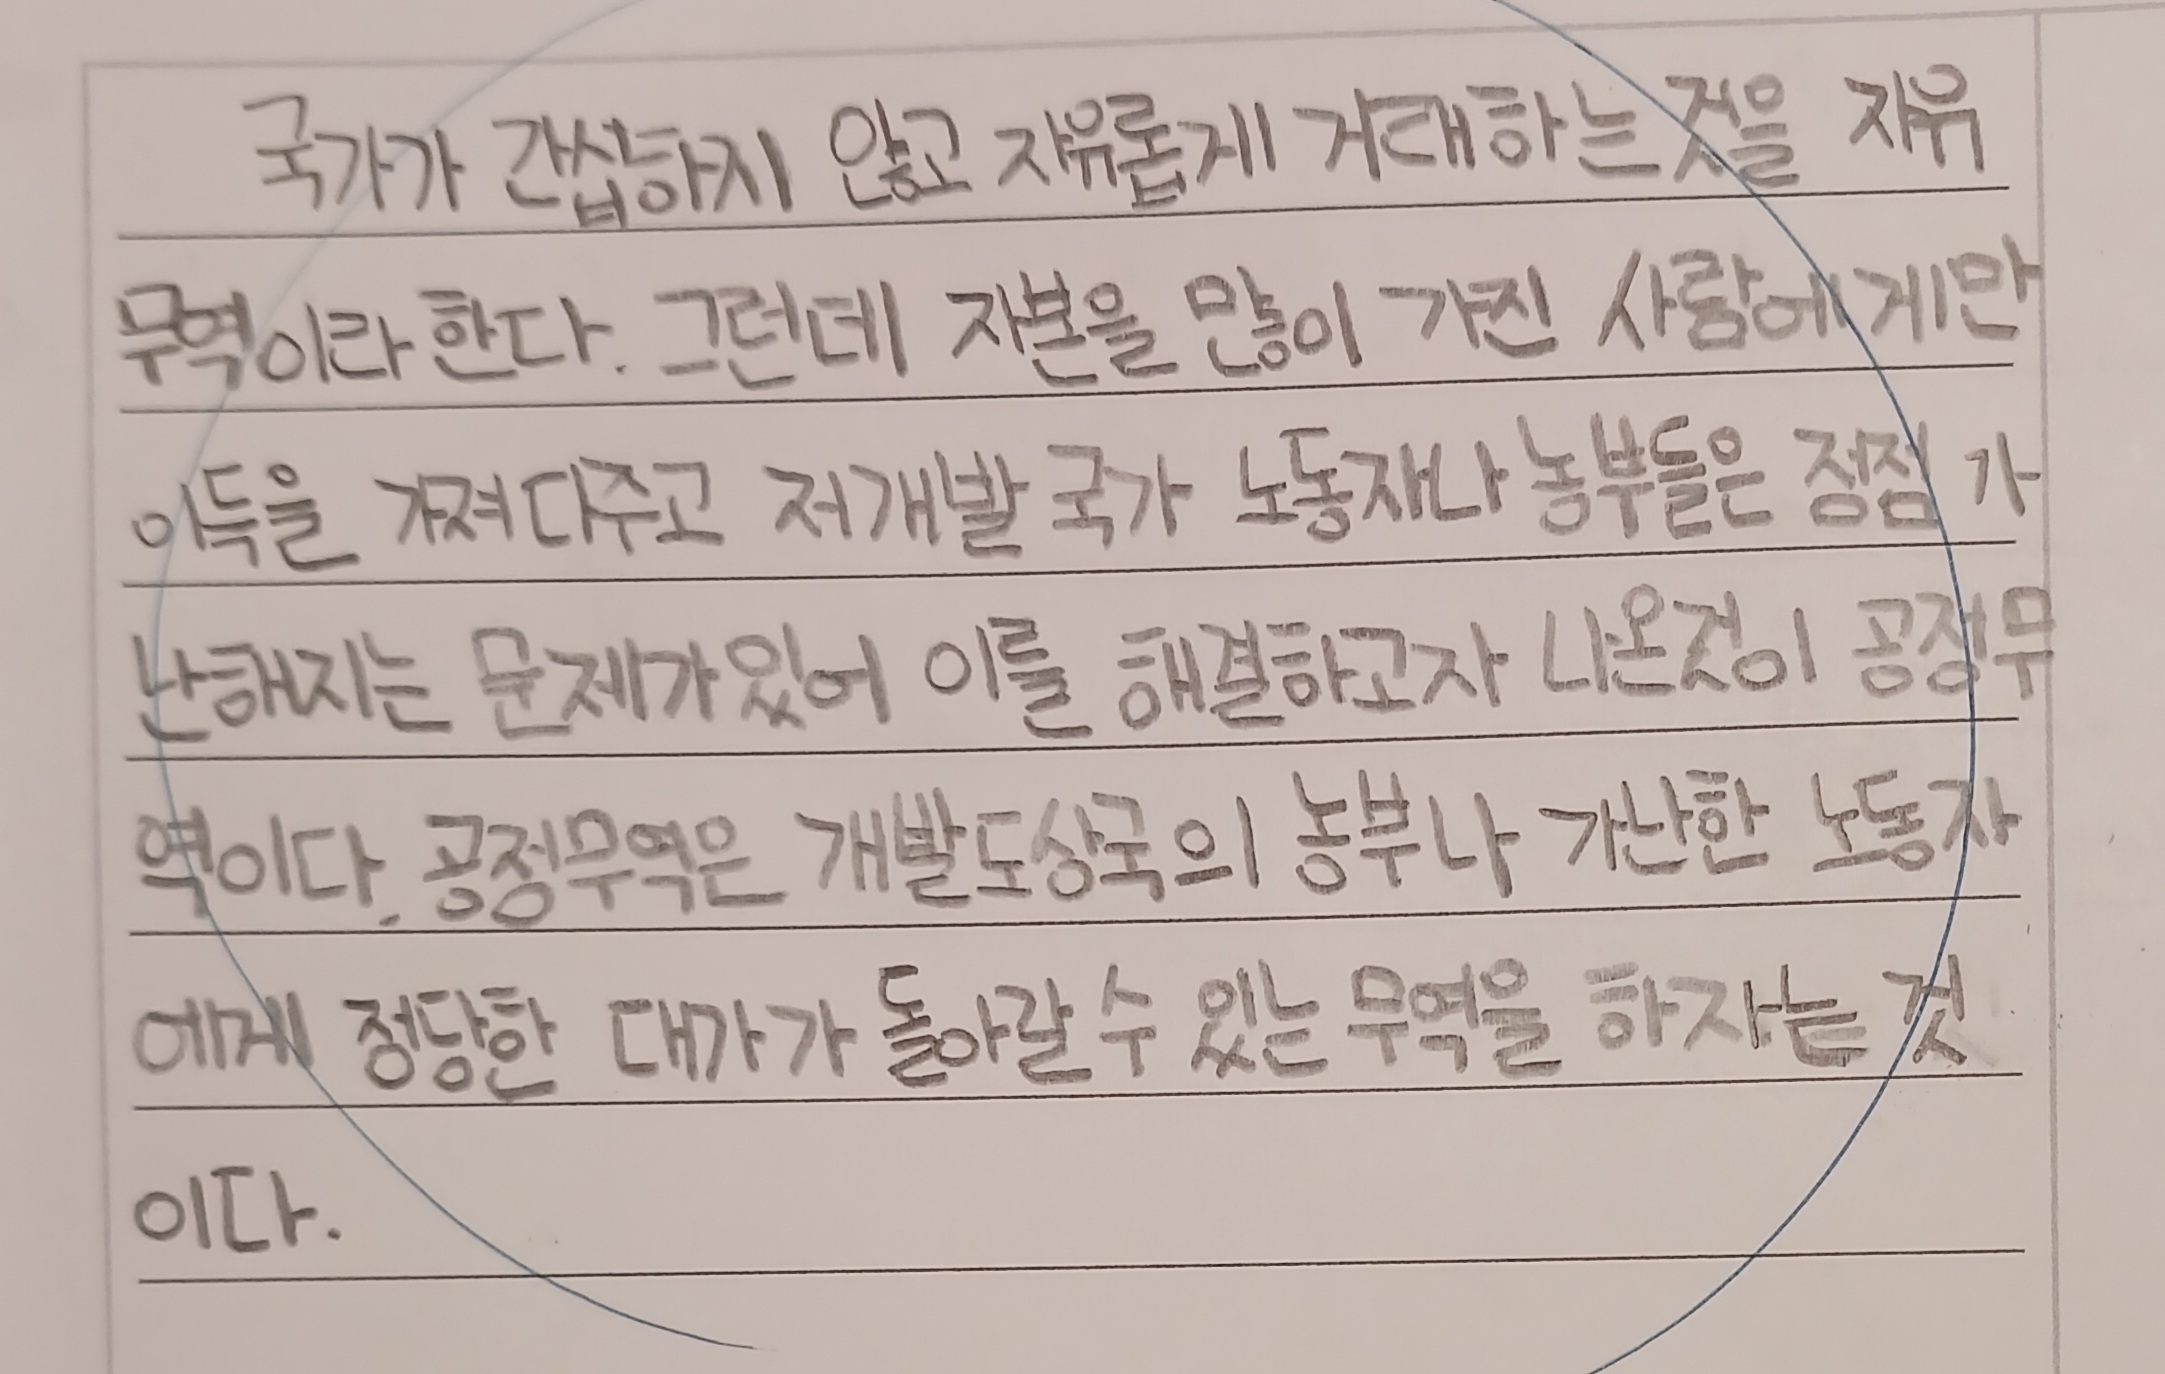 국가가 간섭하지 않고 자유롭게 거대하는 것을 자유
무역이라 한다. 그런데 자본을 많이 가진 사람에게만
이득을 가져다주고 저개발 국가 노동자나 농부들은 점점 가
난해지는 문제가 있어 이를 해결하고자 나온것이 공정무
역이다. 공정무역은 개발도상국의 농부나 가난한 노동자
에게 정당한 대가가 돌아갈 수 있는 무역을 하자는 것
이다.